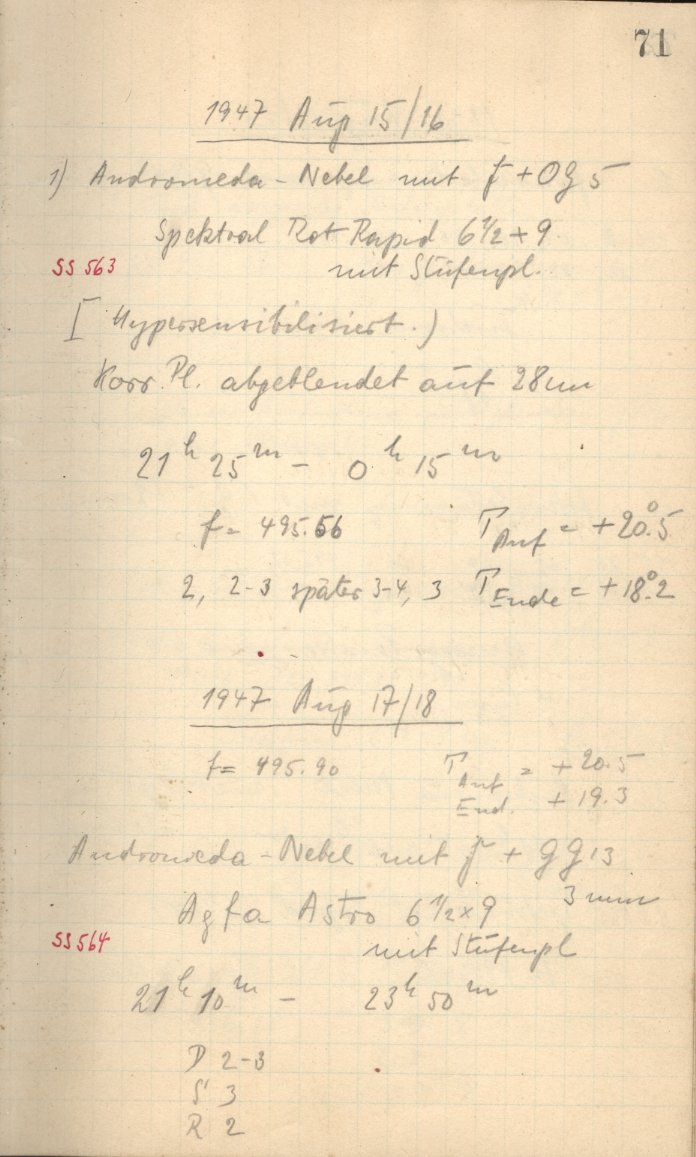 71
1947 Aug 15/16
1) Andromeda-Nebel mit f + OG 5
Spektral Rot Rapid 6 1/2 x 9
SS 563 mit Stufenpl.
[Hypersensibilisiert.)
Korr. Pl. abgeblendet auf 28 cm
21h 25m - 0h 15m
f = 495.56 TAnf = +20°.5
2, 2-3 später 3-4, 3 TEnde = +18°.2
1947 Aug 17/18
f = 495.90 TAnf = +20.5
End. +19.3
Andromeda-Nebel mit f + GG 13
3 mm
Agfa Astro 6 1/2 x 9
SS 564 mit Stufenpl
21h 10m - 23h 50m
D 2-3
S 3
R 2